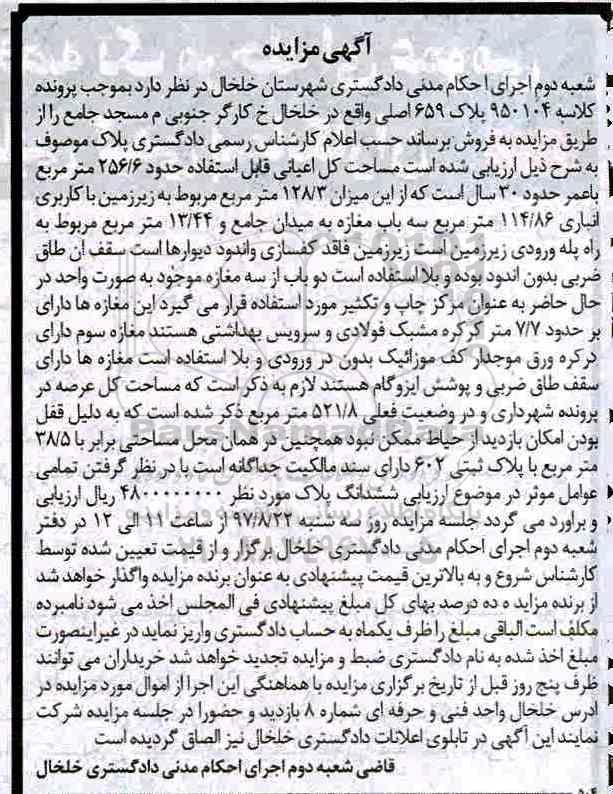 آگهی مزایده
شعبه دوم اجرای احکام مدنی دادگستری شهرستان خلخال در نظر دارد بموجب پرونده
کلاسه ۹۵۰۱۰۴ پلاک ۶۵۹ اصلی واقع در خلخال خ کارگر جنوبی م مسجد جامع را از
طریق مزایده به فروش برساند حسب اعلام کارشناس رسمی دادگستری پلاک موصوف
به شرح ذیل ارزیابی شده است مساحت کل اعیانی قابل استفاده حدود ۲۵۶/۶ متر مربع
باعمر حدود ۳۰ سال است که از این میزان ۱۲۸/۳ متر مربع مربوط به زیرزمین با کاربری
انباری ۱۱۴/۸۶ متر مربع سه باب مغازه به میدان جامع و ۱۳/۴۴ متر مربع مربوط به
راه پله ورودی زیرزمین است زیرزمین فاقد کفسازی واندود دیوارها است سقف ان طاق
ضربی بدون اندود بوده و بلا استفاده است دو باب از سه مغازه موجود به صورت واحد در
حال حاضر به عنوان مرکز چاپ و تکثیر مورد استفاده قرار می گیرد این مغازه ها دارای
بر حدود ۷/۷ متر کرکره مشبک فولادی و سرویس بهداشتی هستند مغازه سوم دارای
درکره ورق موجدار کف موزائیک بدون در ورودی و بلا استفاده است مغازه ها دارای
سقف طاق ضربی و پوشش ایزوگام هستند لازم به ذکر است که مساحت کل عرصه در
پرونده شهرداری و در وضعیت فعلی ۵۲۱/۸ متر مربع ذکر شده است که به دلیل قفل
بودن امکان بازدید از حیاط ممکن نبود همچنین در همان محل مساحتی برابر با ۳۸/۵
متر مربع با پلاک ثبتی ۶۰۲ دارای سند مالکیت جداگانه است با در نظر گرفتن تمامی
عوامل موثر در موضوع ارزیابی ششدانگ پلاک مورد نظر ۴۸۰۰۰۰۰۰۰۰۰ ریال ارزیابی
و براورد می گردد جلسه مزایده روز سه شنبه ۹۷/۸/۲۲ از ساعت ۱۱ الی ۱۲ در دفتر
شعبه دوم اجرای احکام مدنی دادگستری خلخال برگزار و از قیمت تعیین شده توسط
کارشناس شروع و به بالاترین قیمت پیشنهادی به عنوان برنده مزایده واگذار خواهد شد
از برنده مزاید ه ده درصد بهای کل مبلغ پیشنهادی فی المجلس اخذ می شود نامبرده
مکلف است الباقی مبلغ را ظرف یکماه به حساب دادگستری واریز نماید در غیراینصورت
مبلغ اخذ شده به نام دادگستری ضبط و مزایده تجدید خواهد شد خریداران می توانند
ظرف پنج روز قبل از تاریخ برگزاری مزایده با هماهنگی این اجرا از اموال مورد مزایده در
ادرس خلخال واحد فنی و حرفه ای شماره ۸ بازدید و حضورا در جلسه مزایده شرکت
نمایند این آگهی در تابلوی اعلانات دادگستری خلخال نیز الصاق گردیده است
قاضی شعبه دوم اجرای احکام مدنی دادگستری خلخال
ParsNamadData